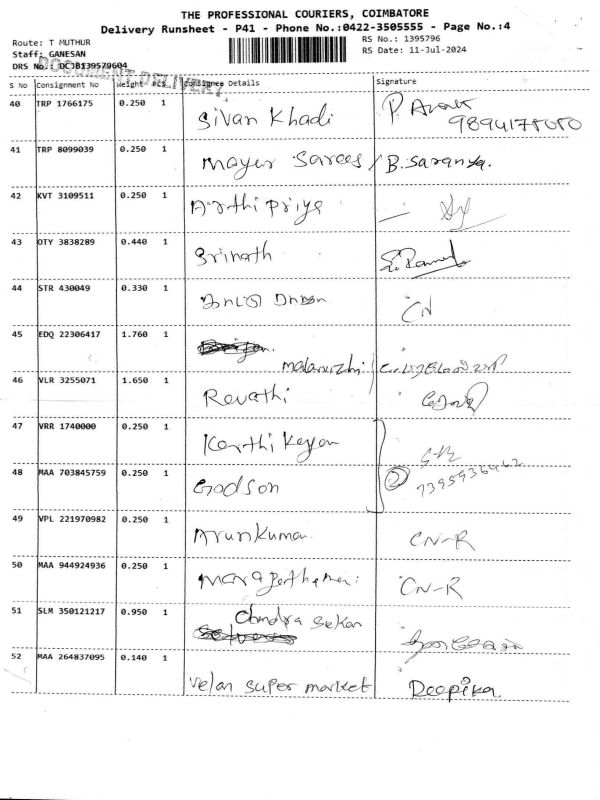 THE PROFESSIONAL COURIERS, COIMBATORE
Delivery Runsheet - P41 - Phone No.:0422-3505555 - Page No.:4
Route: T MUTHUR RS No.: 1395796
Staff: GANESAN RS Date: 11-Jul-2024
DRS No.: DCJB139579604
DOCUMENT DELIVERY
S No Consignment No Weight Pcs Consignee Details Signature
40 TRP 1766175 0.250 1 Sivan Khadi
9894178080
41 TRP 8099039 0.250 1 Mayur Sarees / B. Saranya.
42 KVT 3109511 0.250 1 Arthi priya
43 OTY 3838289 0.440 1 Srinath
44 STR 430049 0.330 1 CN
45 EDQ 22306417 1.760 1 malarvizhi
46 VLR 3255071 1.650 1 Revathi
47 VRR 1740000 0.250 1 Karthikeyan
48 MAA 703845759 0.250 1 Godson 2 7395936462
49 VPL 221970982 0.250 1 Arunkumar CN-R
50 MAA 944924936 0.250 1 CN-R
51 SLM 350121217 0.950 1 Chandra Sekar
52 MAA 264837095 0.140 1 Velan super market Deepika